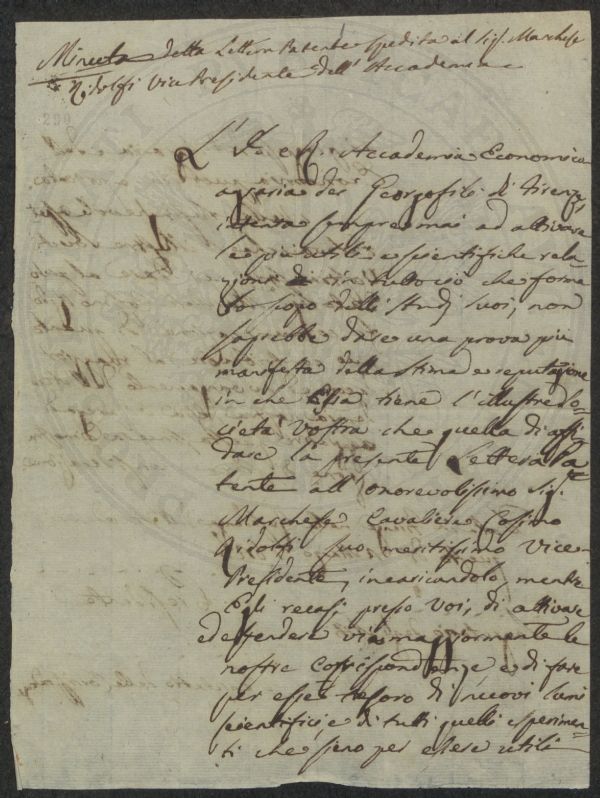 Minuta della Lettera Patente spedita al Sig. Marchese
Ridolfi Vice Presidente dell'Accademia
L'I. e R. Accademia Economico
agraria dei Georgofili di Firenze
intenta sempre mai ad attivare
le più utili e scientifiche rela-
zioni in tutto ciò che forma
lo scopo delli Studj suoi, non
saprebbe dare una prova più
manifesta della stima e reputazione
in che Essa tiene l'illustre So-
cietà Vostra che quella di affi-
dare la presente Lettera Pa-
tente all'onorevolissimo Sig.
Marchese Cavaliere Cosimo
Ridolfi suo meritissimo Vice-
Presidente, incaricandolo, mentre
Egli recasi presso Voi, di attivare
ed estendere via maggiormente le
nostre Corrispondenze e di fare
per esse tesoro di nuovi lumi
scientifici e di tutti quelli esperimen-
ti che sieno per essere utili